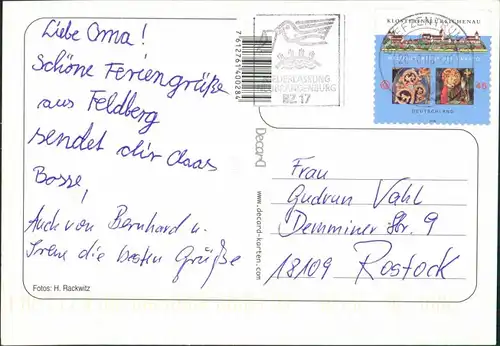 Liebe Oma!
Schöne Feriengrüße
aus Feldberg
sendet dir Claas
Bosse!
Auch von Bernhard u.
Irene die besten Grüße
Fotos: H. Rackwitz
7612761400284
Decard
www.decard-karten.com
NIEDERLASSUNG
NEUBRANDENBURG
BZ 17
KLOSTERINSEL REICHENAU
WELTKULTURERBE DER UNESCO
45
DEUTSCHLAND
Frau
Gudrun Vahl
Demminer Str. 9
18109 Rostock